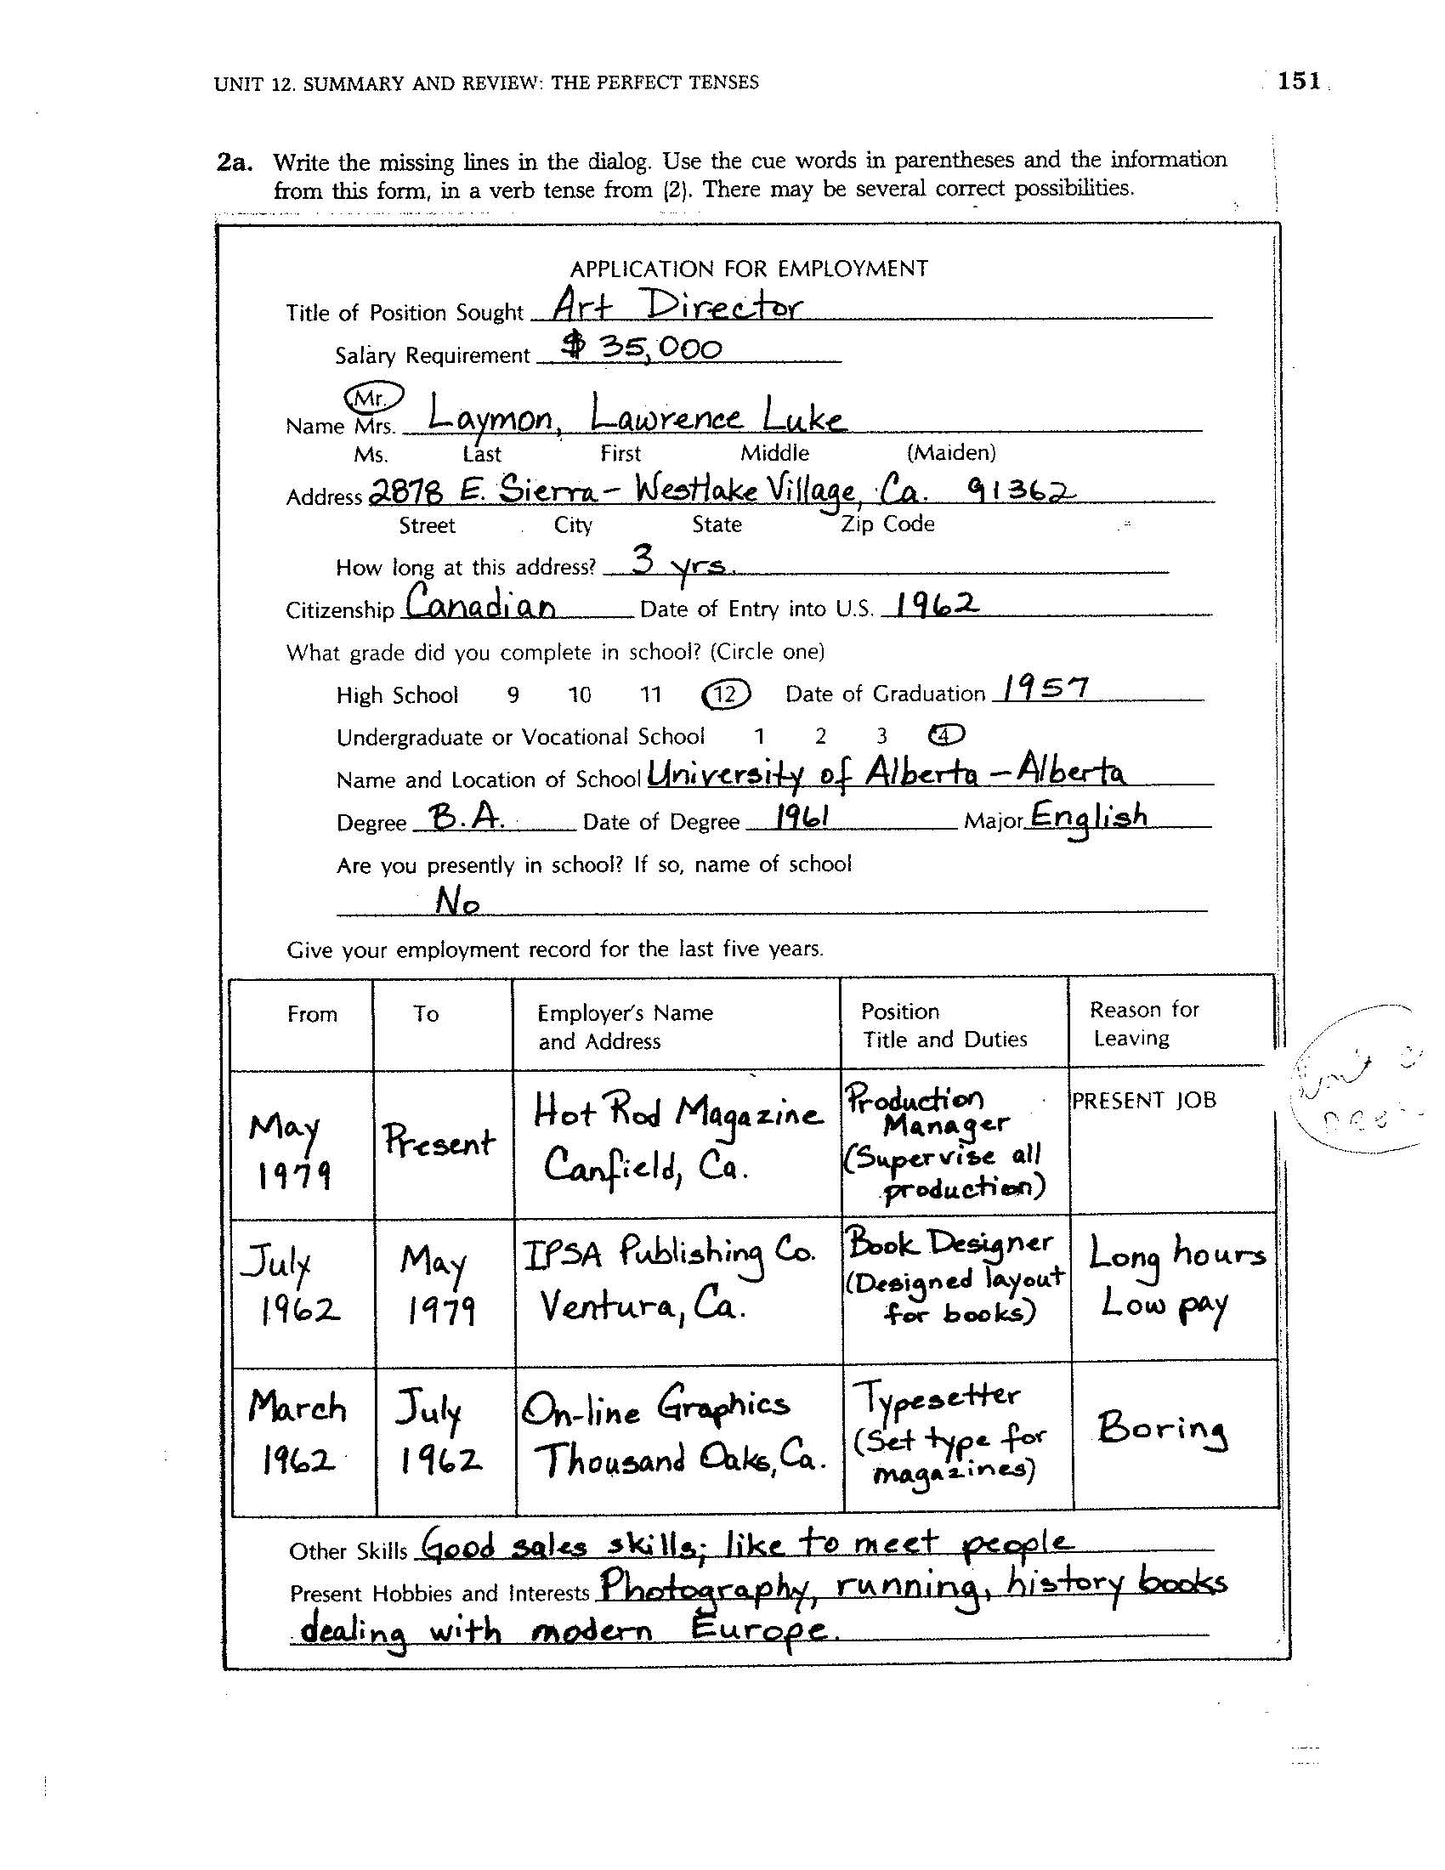 UNIT 12. SUMMARY AND REVIEW: THE PERFECT TENSES 151
2a. Write the missing lines in the dialog. Use the cue words in parentheses and the information
from this form, in a verb tense from (2). There may be several correct possibilities.
APPLICATION FOR EMPLOYMENT
Title of Position Sought Art Director
Salary Requirement $ 35,000
Mr.
Name Mrs. Laymon, Lawrence Luke
Ms. Last First Middle (Maiden)
Address 2878 E. Sierra - Westlake Village, Ca. 91362
Street City State Zip Code
How long at this address? 3 yrs.
Citizenship Canadian Date of Entry into U.S. 1962
What grade did you complete in school? (Circle one)
High School 9 10 11 12 Date of Graduation 1957
Undergraduate or Vocational School 1 2 3 4
Name and Location of School University of Alberta - Alberta
Degree B.A. Date of Degree 1961 Major English
Are you presently in school? If so, name of school
No
Give your employment record for the last five years.
From To Employer's Name Position Reason for
and Address Title and Duties Leaving
May 1979
Present
Hot Rod Magazine
Canfield, Ca.
Production
Manager
(Supervise all
production)
PRESENT JOB
July
1962
May
1979
IPSA Publishing Co.
Ventura, Ca.
Book Designer
(Designed layout
for books)
Long hours
Low pay
March
1962
July
1962
On-line Graphics
Thousand Oaks, Ca.
Typesetter
(Set type for
magazines)
Boring
Other Skills Good sales skills; like to meet people
Present Hobbies and Interests Photography, running, history books
dealing with modern Europe.